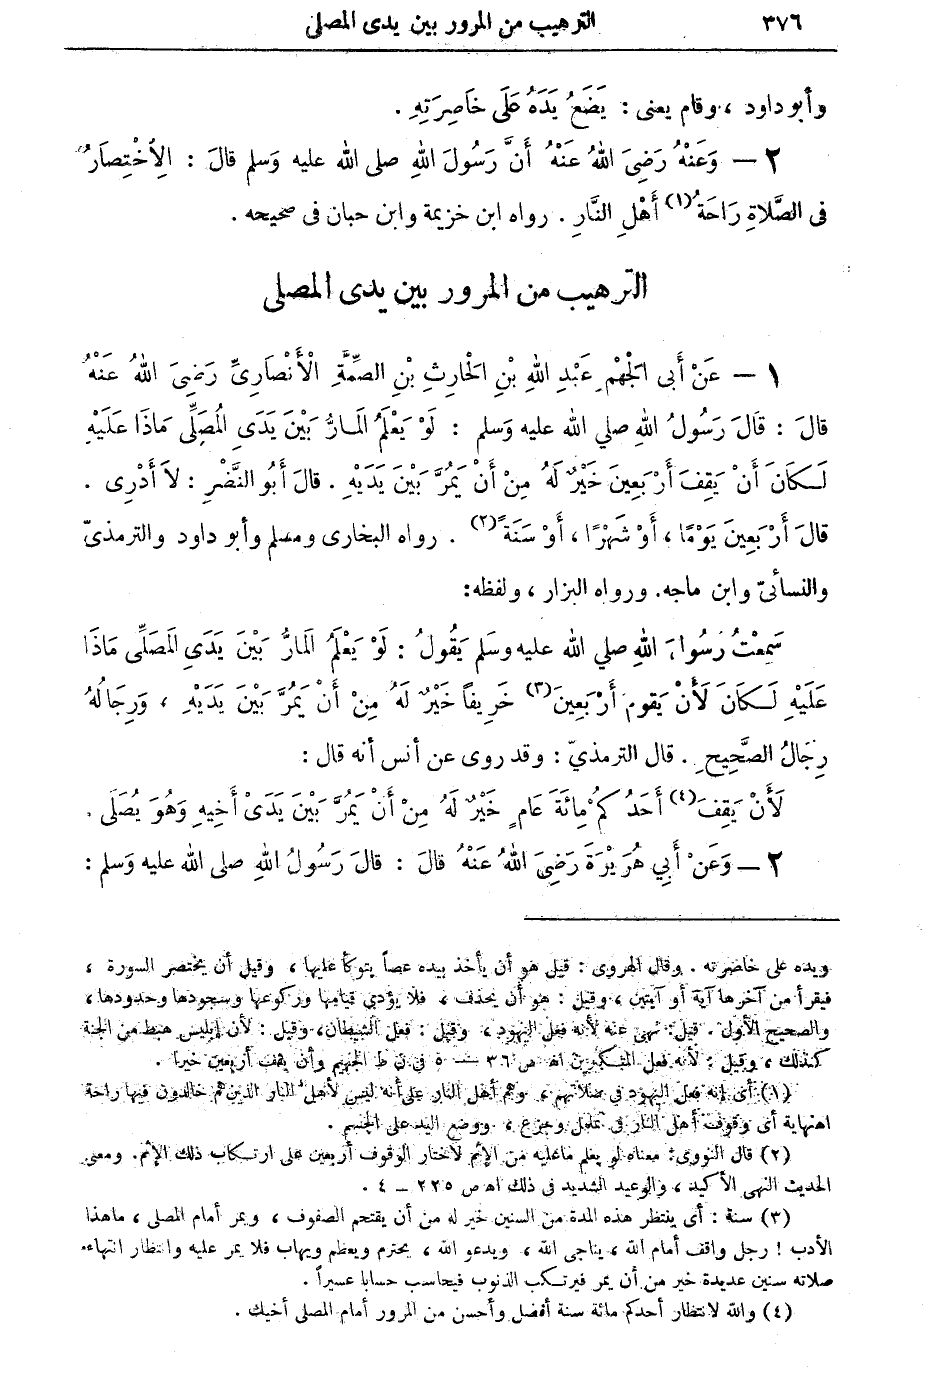 ٣٧٦ الترهيب من المرور بين يدى المصلى
وأبو داود ، وقام يعنى : يَضَعُ يَدَهُ عَلَى خَاصِرَتِهِ .
٢ — وَعَنْهُ رَضِىَ اللهُ عَنْهُ أَنَّ رَسُولَ اللهِ صلى الله عليه وَسلم قالَ : الِاخْتِصَارُ
فى الصَّلاةِ رَاحَةُ (١) أَهْلِ النَّارِ . رواه ابن خزيمة وابن حبان فى صحيحه .
الترهيب من المرور بين يدى المصلى
١ — عَنْ أَبى الجْهْمِ عَبْدِ اللهِ بْنِ الحَارِثِ بْنِ الصِّمَّةِ الْأَنْصَارِىِّ رَضِىَ اللهُ عَنْهُ
قالَ : قَالَ رَسُولُ اللهِ صلي الله عليه وَسلم : لَوْ يَعْلَمُ المَارُّ بَيْنَ يَدَىِ المُصَلِّى مَاذَا عَلَيْهِ
لَكَانَ أَنْ يَقِفَ أَرْبَعِينَ خَيْرٌ لَهُ مِنْ أَنْ يَمُرَّ بَيْنَ يَدَيْهِ . قالَ أَبُو النَّضْرِ : لاَ أَدْرِى .
قالَ أَرْبَعِينَ يَوْمًا ، أَوْ شَهْرًا ، أَوْ سَنَةً (٢) . رواه البخارى ومسلم وأبو داود والترمذىّ
والنسائىّ وابن ماجه. ورواه البزار ، ولفظه:
سَمِعْتُ رَسُولَ اللهِ صلي الله عليه وسلم يَقُولُ : لَوْ يَعْلَمُ المَارُّ بَيْنَ يَدَىِ المَصَلِّى مَاذَا
عَلَيْهِ لَكَانَ لَأَنْ يَقومَ أَرْبَعِينَ (٣) خَرِيفاً خَيْرٌ لَهُ مِنْ أَنْ يَمُرَّ بَيْنَ يَدَيْهِ ، وَرِجَالُهُ
رِجَالُ الصَّحِيحِ . قال الترمذىّ : وقد روى عن أنس أنه قال :
لَأَنْ يَقِفَ (٤) أَحَدُكُمْ مِائَةَ عَامٍ خَيْرٌ لَهُ مِنْ أَنْ يَمُرَّ بَيْنَ يَدَىْ أَخِيهِ وَهُوَ يُصَلِّى .
٢ — وَعَنْ أَبِي هُرَيْرَةَ رَضِىَ اللهُ عَنْهُ قالَ : قالَ رَسُولُ اللهِ صلى الله عليه وَسلم :
ويده على خاضرته . وقال الهروى : قيل هو أن يأخذ بيده عصاً يتوكأ عليها ، وقيل أن يختصر السورة ،
فيقرأ من آخرها آية أو آيتين ، وقيل : هو أن يحذف ، فلا يؤدي قيامها وركوعها وسجودها وحدودها ،
والصحيح الأول . قيل: نهى عنه لأنه فعل اليهود ، وقيل : فعل الشيطان، وقيل : لأن إبليس هبط من الجنة
كذلك ، وقيل : لأنه فعل المتكبرين اه ص ٣٦ — ٥ في ن ط الجهيم وأن يقف أربعين خيرا .
(١) أى إنه فعل اليهود في صلاتهم ، وهم أهل النار على أنه ليس لأهل النار الذين هم خالدون فيها راحة
اهنهاية أى وقوف أهل النار فى تملل وجزع ، ووضع اليد على الجنب .
(٢) قال النووى: معناه لو يعلم ماعليه من الإثم لاختار الوقوف أربعين على ارتكاب ذلك الإثم. ومعنى
الحديث النهى الأكيد ، والوعيد الشديد فى ذلك اه ص ٢٢٥ — ٤ .
(٣) سنة : أى ينتظر هذه المدة من السنين خير له من أن يقتحم الصفوف ، ويمر أمام المصلى ، ماهذا
الأدب ! رجل واقف أمام الله ، يناجى الله ، ويدعو الله ، يحترم ويعظم ويهاب فلا يمر عليه وانتظار انتهاء
صلاته سنين عديدة خير من أن يمر فيرتكب الذنوب فيحاسب حسابا عسيراً .
(٤) والله لانتظار أحدكم مائة سنة أفضل وأحسن من المرور أمام المصلى أخيك .